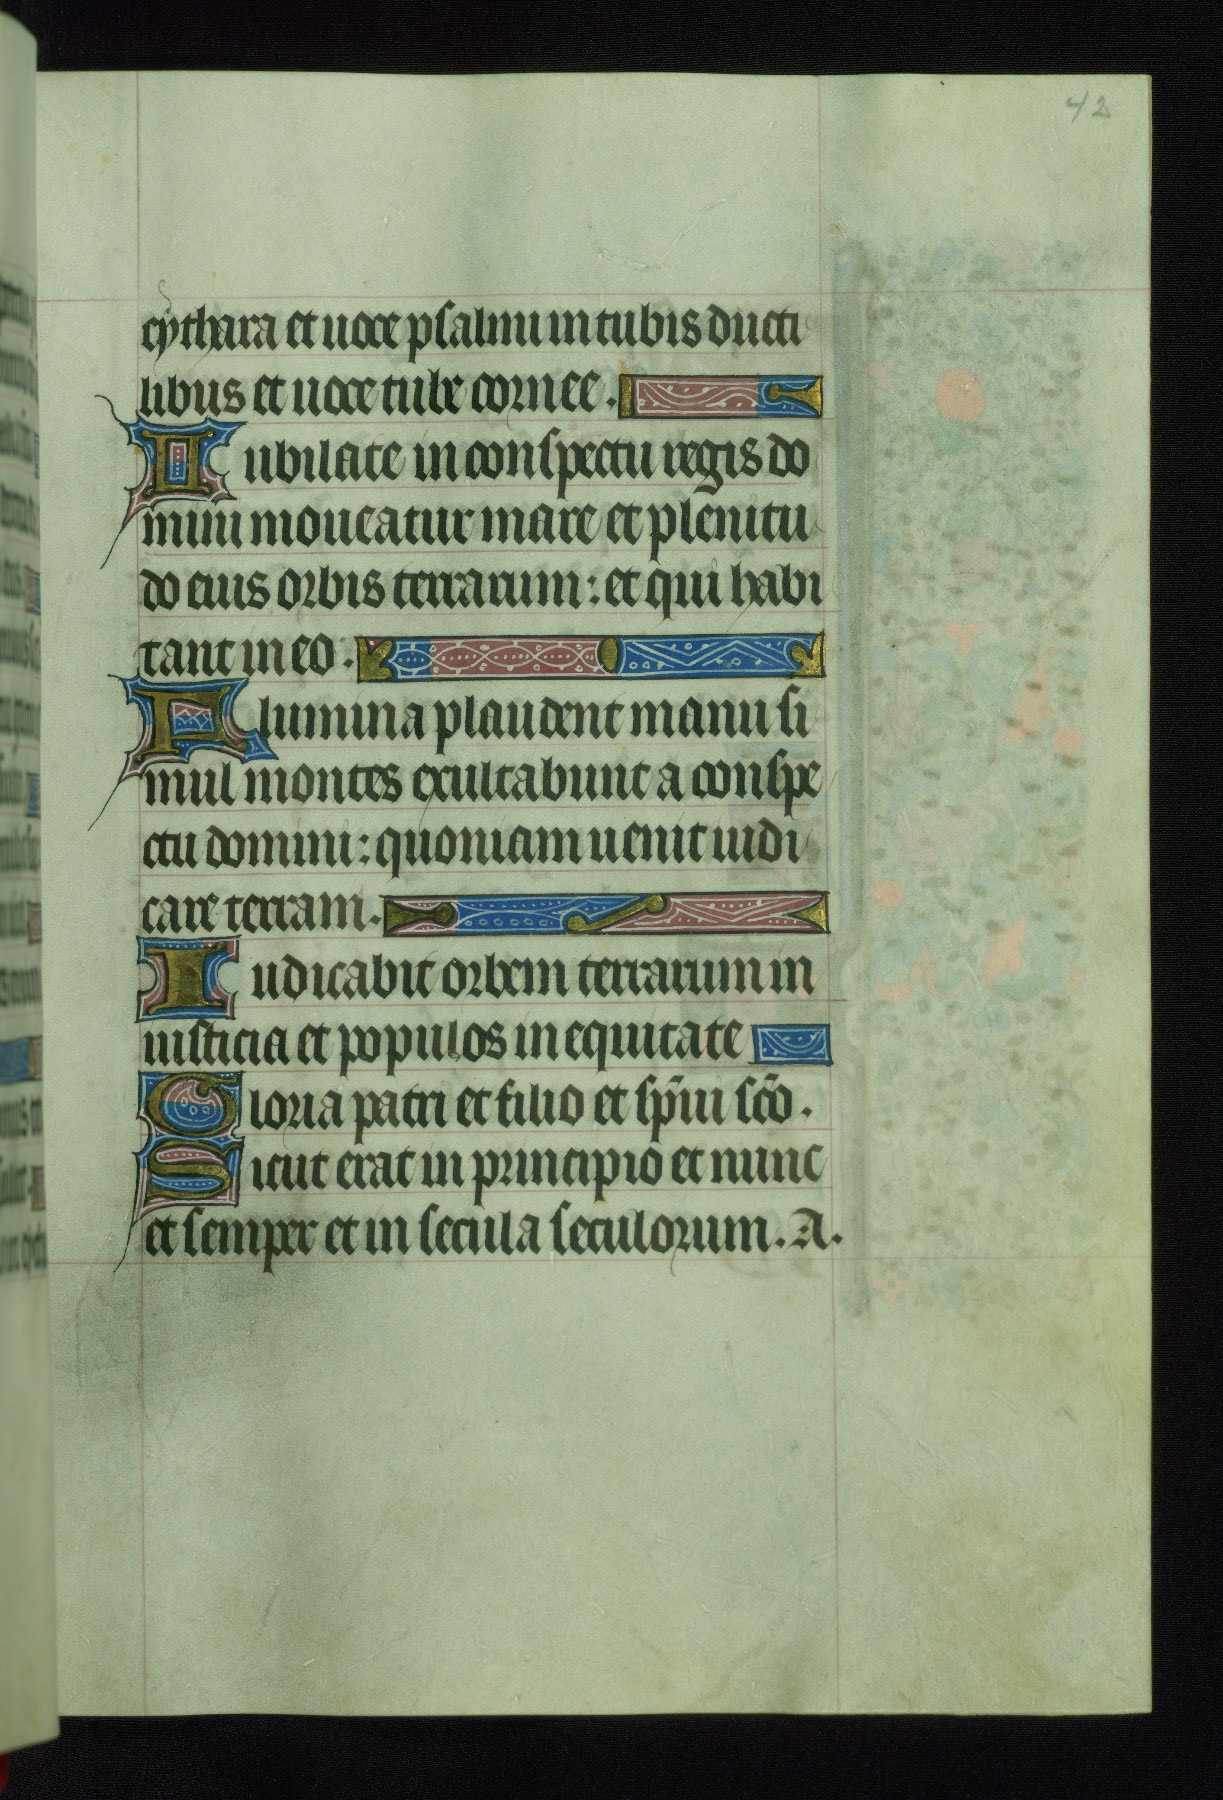 42
cythara et uoce psalmi in tubis ducti
libus et uoce tube cornee.
Iubilate in conspectu regis do
mini moueatur mare et plenitu
do eius orbis terrarum: et qui habi
tant in eo:
Flumina plaudent manu si
mul montes exultabunt a conspe
ctu domini: quoniam uenit iudi
care terram.
Iudicabit orbem terrarum in
iusticia et populos in equitate
Gloria patri et filio et sp̄iui sc̄o.
Sicut erat in principio et nunc
et semper et in secula seculorum. A.